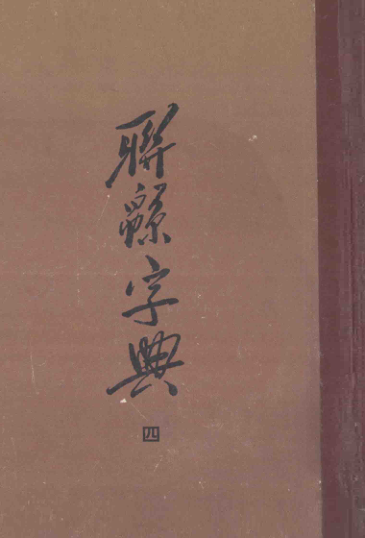 聯緜字典
四